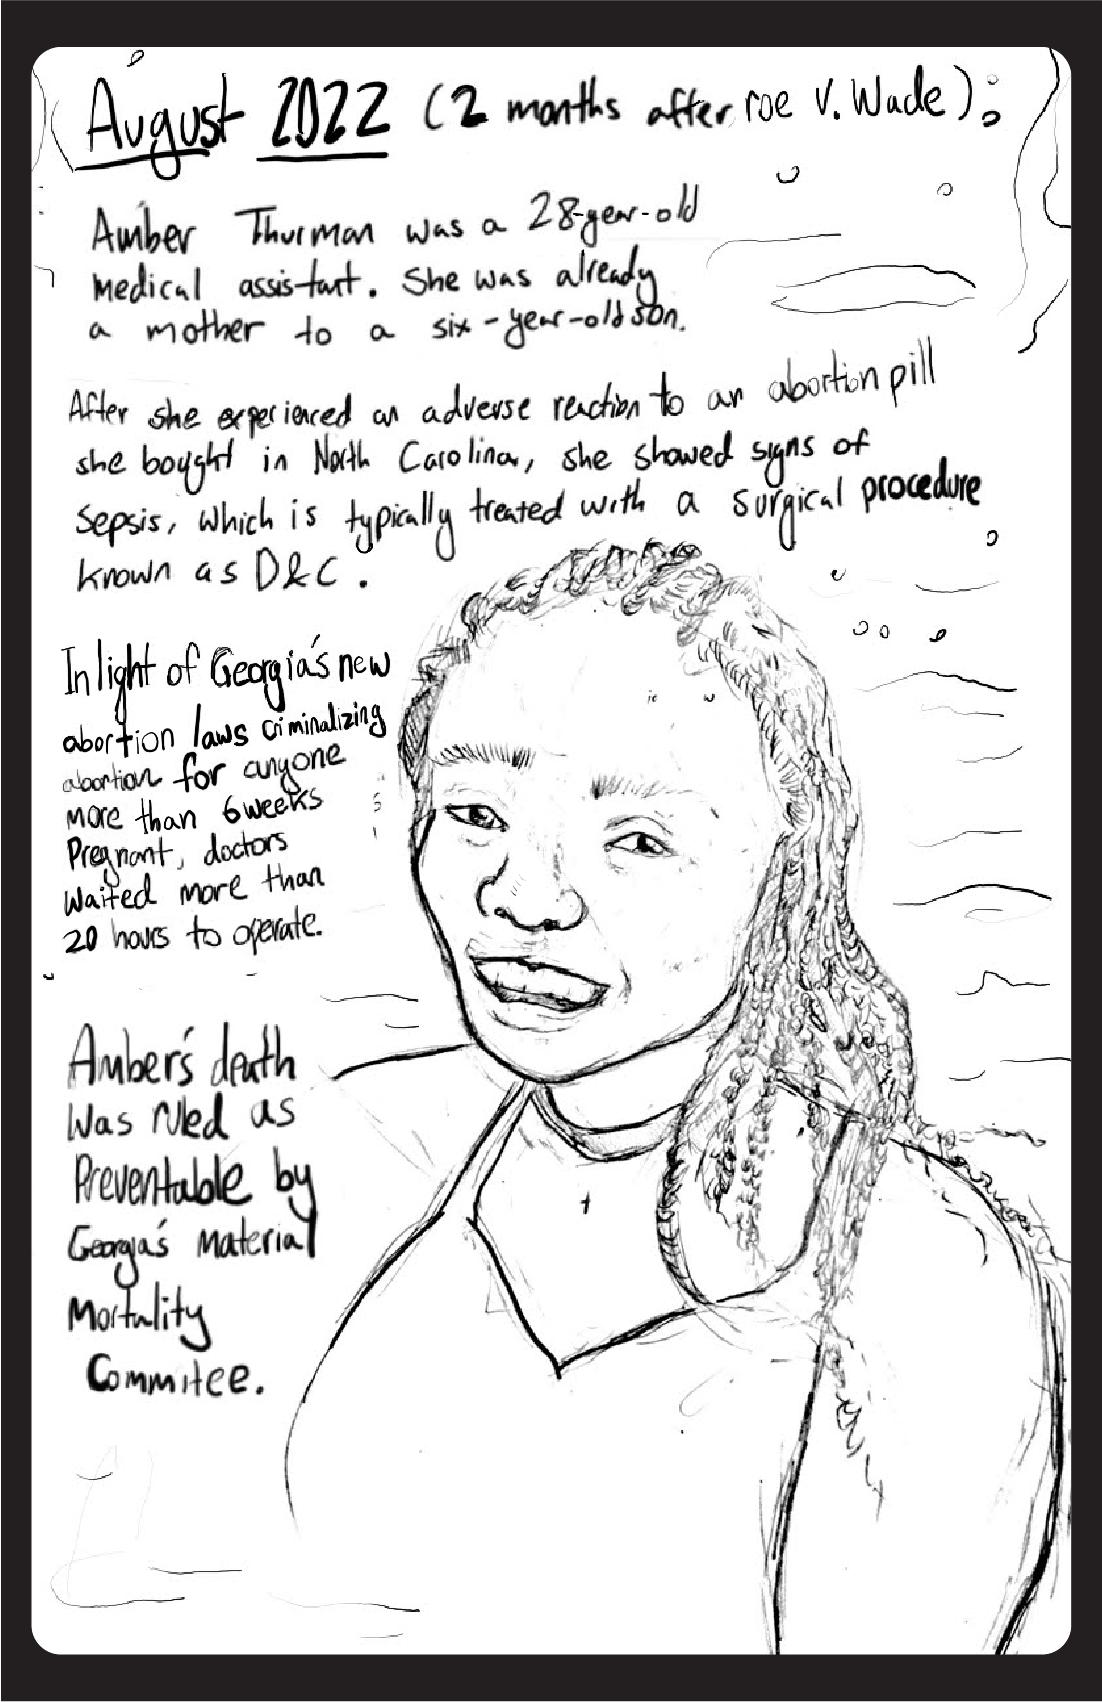 August 2022 (2 months after roe v. Wade):
Amber Thurman was a 28-year-old
medical assistant. She was already
a mother to a six-year-old son.
After she experienced an adverse reaction to an abortion pill
she bought in North Carolina, she showed signs of
sepsis, which is typically treated with a surgical procedure
known as D&C.
In light of Georgia's new
abortion laws criminalizing
abortion for anyone
more than 6 weeks
Pregnant, doctors
waited more than
20 hours to operate.
Amber's death
was ruled as
Preventable by
Georgia's Material
Mortality
Commitee.